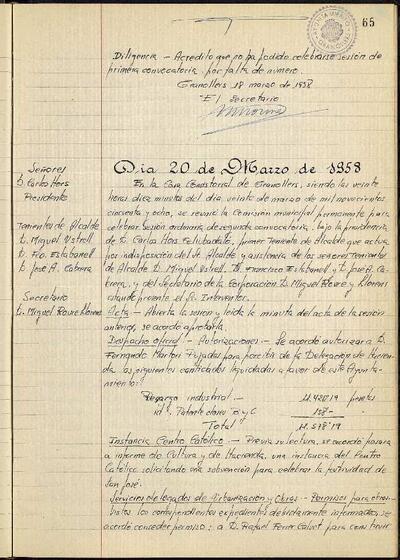 65
AYUNTAMIENTO
GRANOLLERS
Diligencia - Acredito que no ha podido celebrarse sesión de
primera convocatoria por falta de número.
Granollers 18 marzo de 1958
El Secretario
Dia 20 de Marzo de 1958
Señores
D. Carlos Hors
Presidente
Tenientes de Alcalde
D. Miguel Ustrell
D. Fco. Estabanell
D. José A. Cabrera
Secretario
D. Miguel Roure Llorens
En la Casa Consistorial de Granollers, siendo las veinte
horas diez minutos del dia veinte de marzo de mil novecientos
cincuenta y ocho, se reunió la Comisión municipal permanente para
celebrar sesión ordinaria de segunda convocatoria, bajo la presidencia
de D. Carlos Hors, primer Teniente de Alcalde que actua
por indisposición del Sr. Alcalde y asistencia de los señores Tenientes
de Alcalde D. Miguel Ustrell, D. Francisco Estabanell y D. José A. Ca-
brera, y del Secretario de la Corporación D. Miguel Roure y Llorens
estando presente el Sr. Interventor.
Acta - Abierta la sesión y leida la minuta del acta de la sesión
anterior, se acordo aprobarla.
Despacho oficial - Autorizaciones - Se acordó autorizar a D.
Fernando Martori Pujadas para percibir de la Delegación de Hacien-
da las siguientes cantidades liquidadas a favor de este Ayunta-
miento:
Recargo industrial 11.420'19 pesetas
id. Patente clases B y C 158'-
Total 11.578'19
Instancia Centro Católico - Previa su lectura, se acordó pasara
a informe de Cultura y de Hacienda, una instancia del Centro
Católico solicitando una subvención para celebrar la festividad de
san José.
Servicios delegados de Urbanización y Obras - Permisos para obras -
Vistos los correspondientes expedientes debidamente informados, se
acordo conceder permiso: a D. Rafael Ferrer Calvet para construir